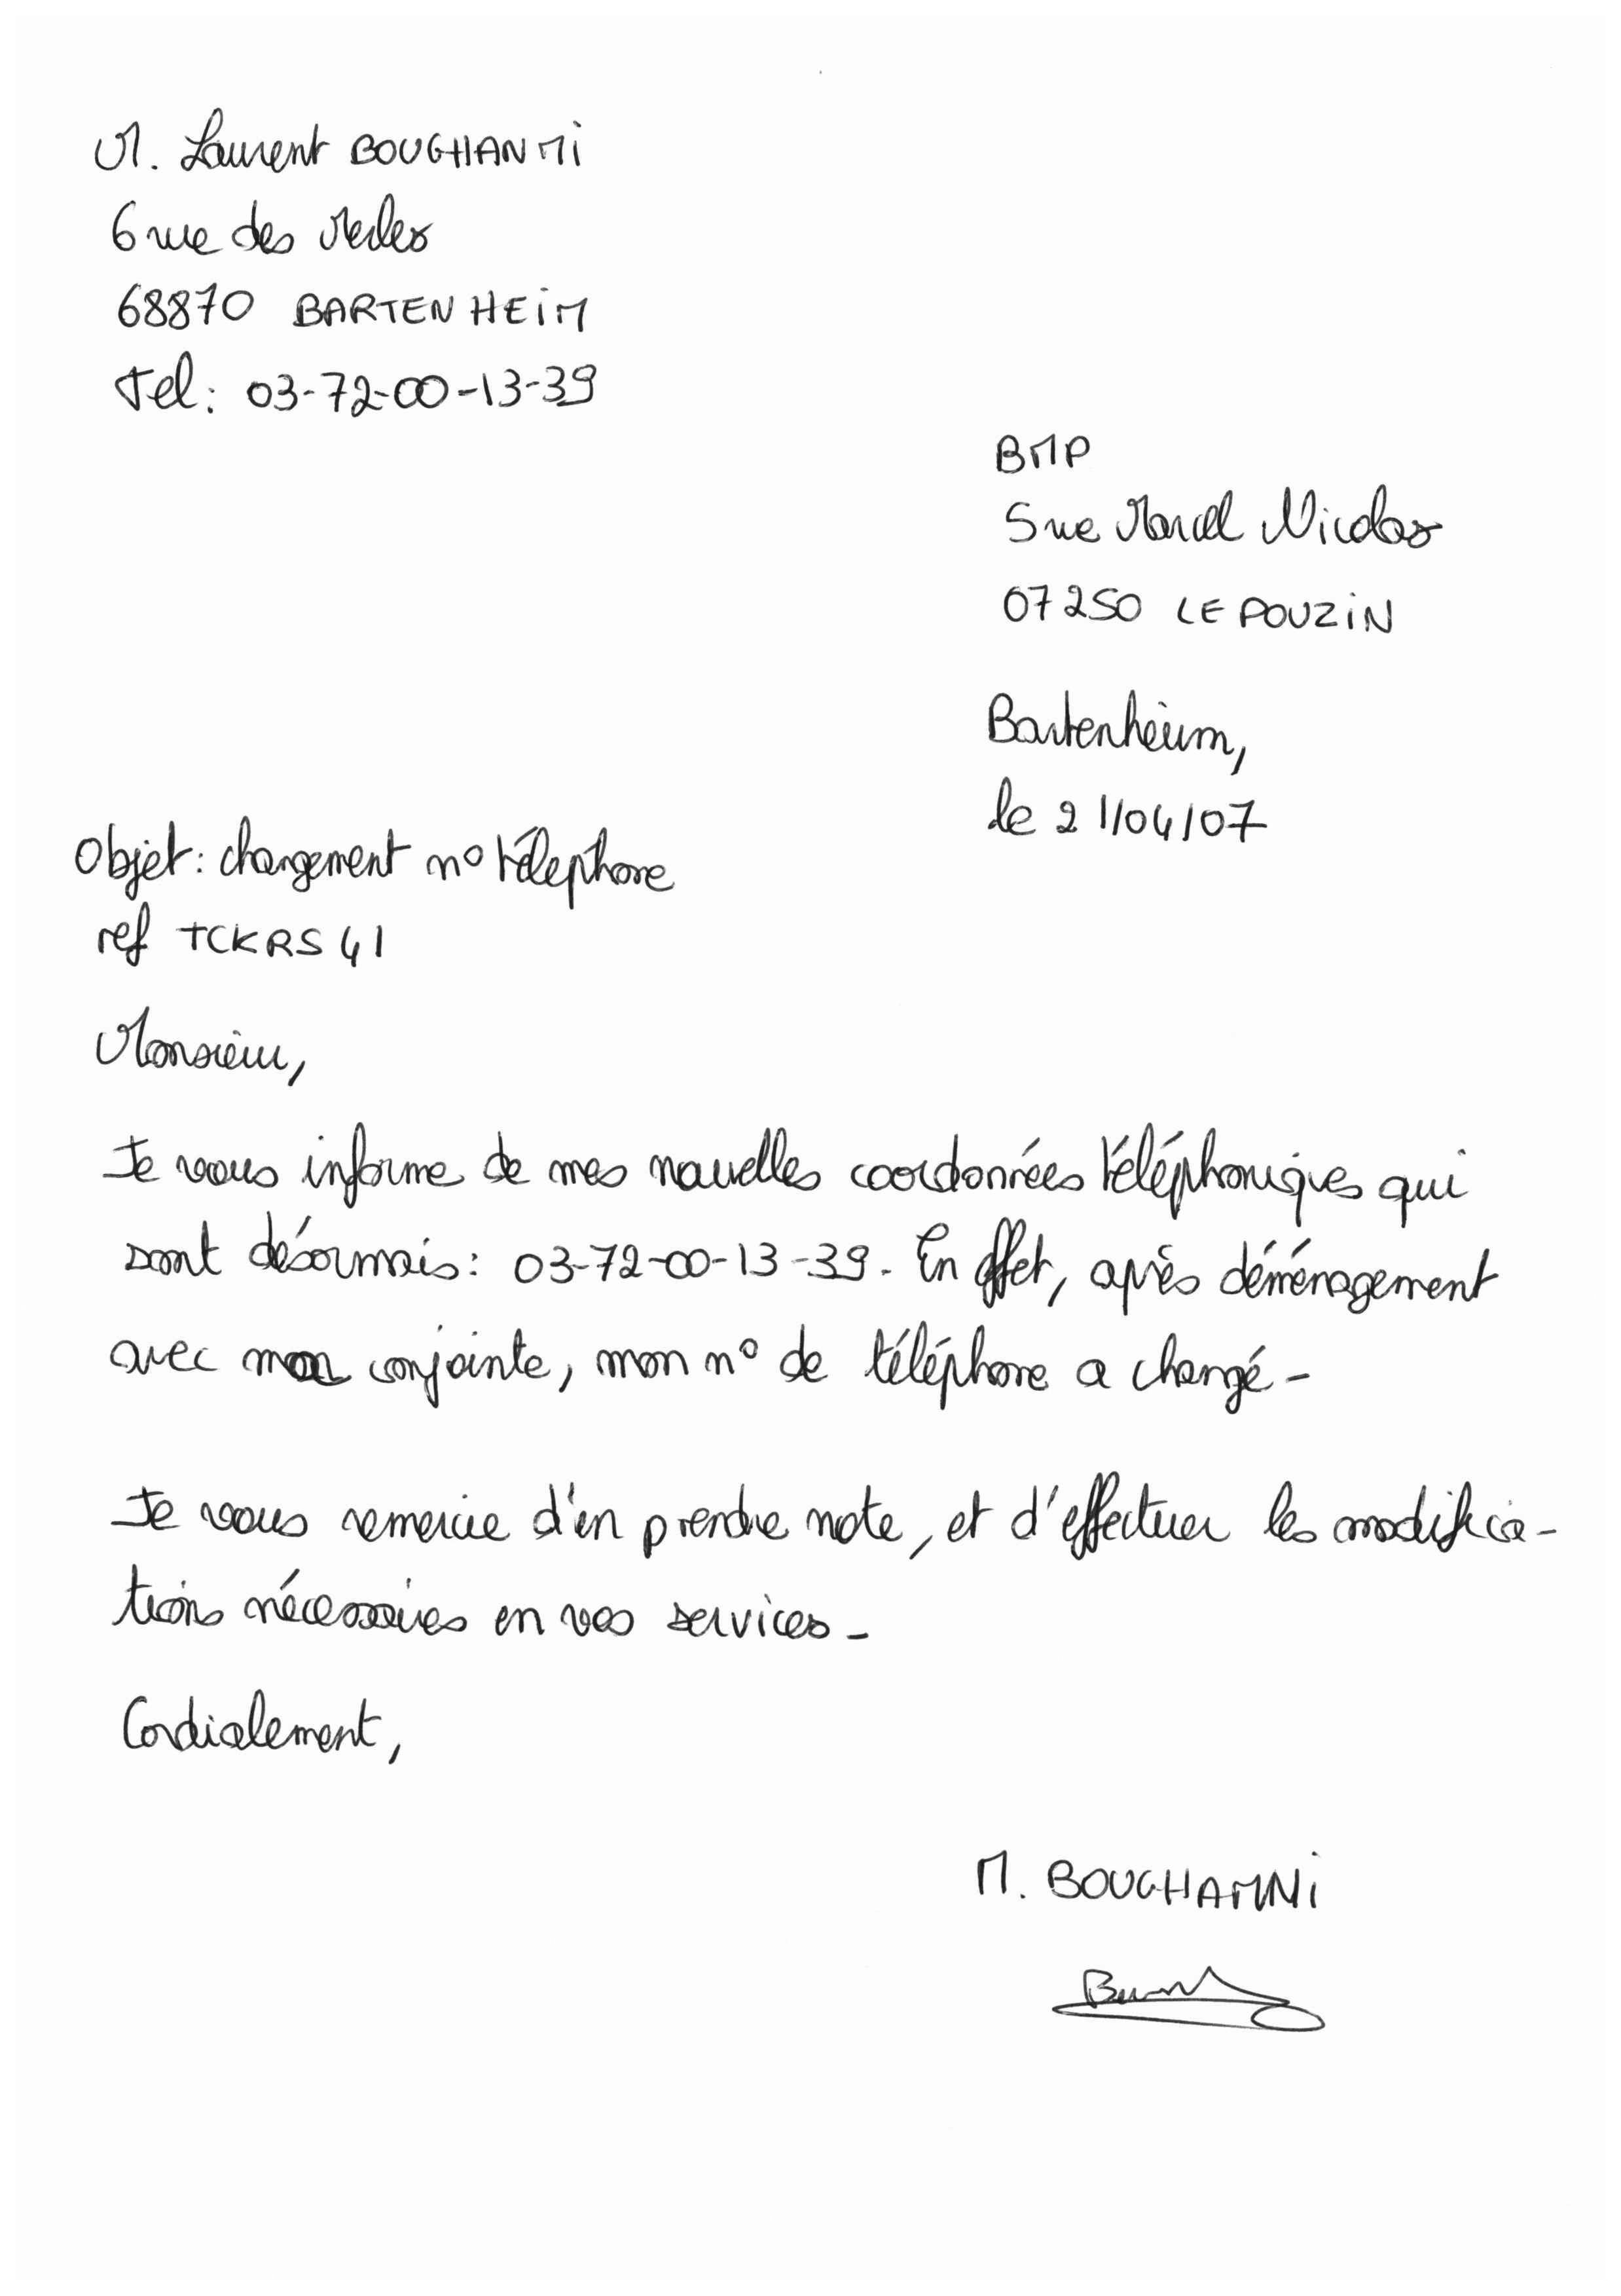 M. Laurent BOUGHANMi
6 rue des Merles
68870 BARTENHEiM
Tel: 03-72-00-13-39
BMP
5 rue Marcel Nicolas
07250 LE POUZiN
Bartenheim,
le 21/04/07
Objet: changement n° téléphone
ref TCKRS41
Monsieur,
Je vous informe de mes nouvelles coordonnées téléphoniques qui
sont désormais: 03-72-00-13-39. En effet, après déménagement
avec ma conjointe, mon n° de téléphone a changé-
Je vous remercie d'en prendre note, et d'effectuer les modifica-
tions nécessaires en vos services-
Cordialement,
M. BOUGHAMNi